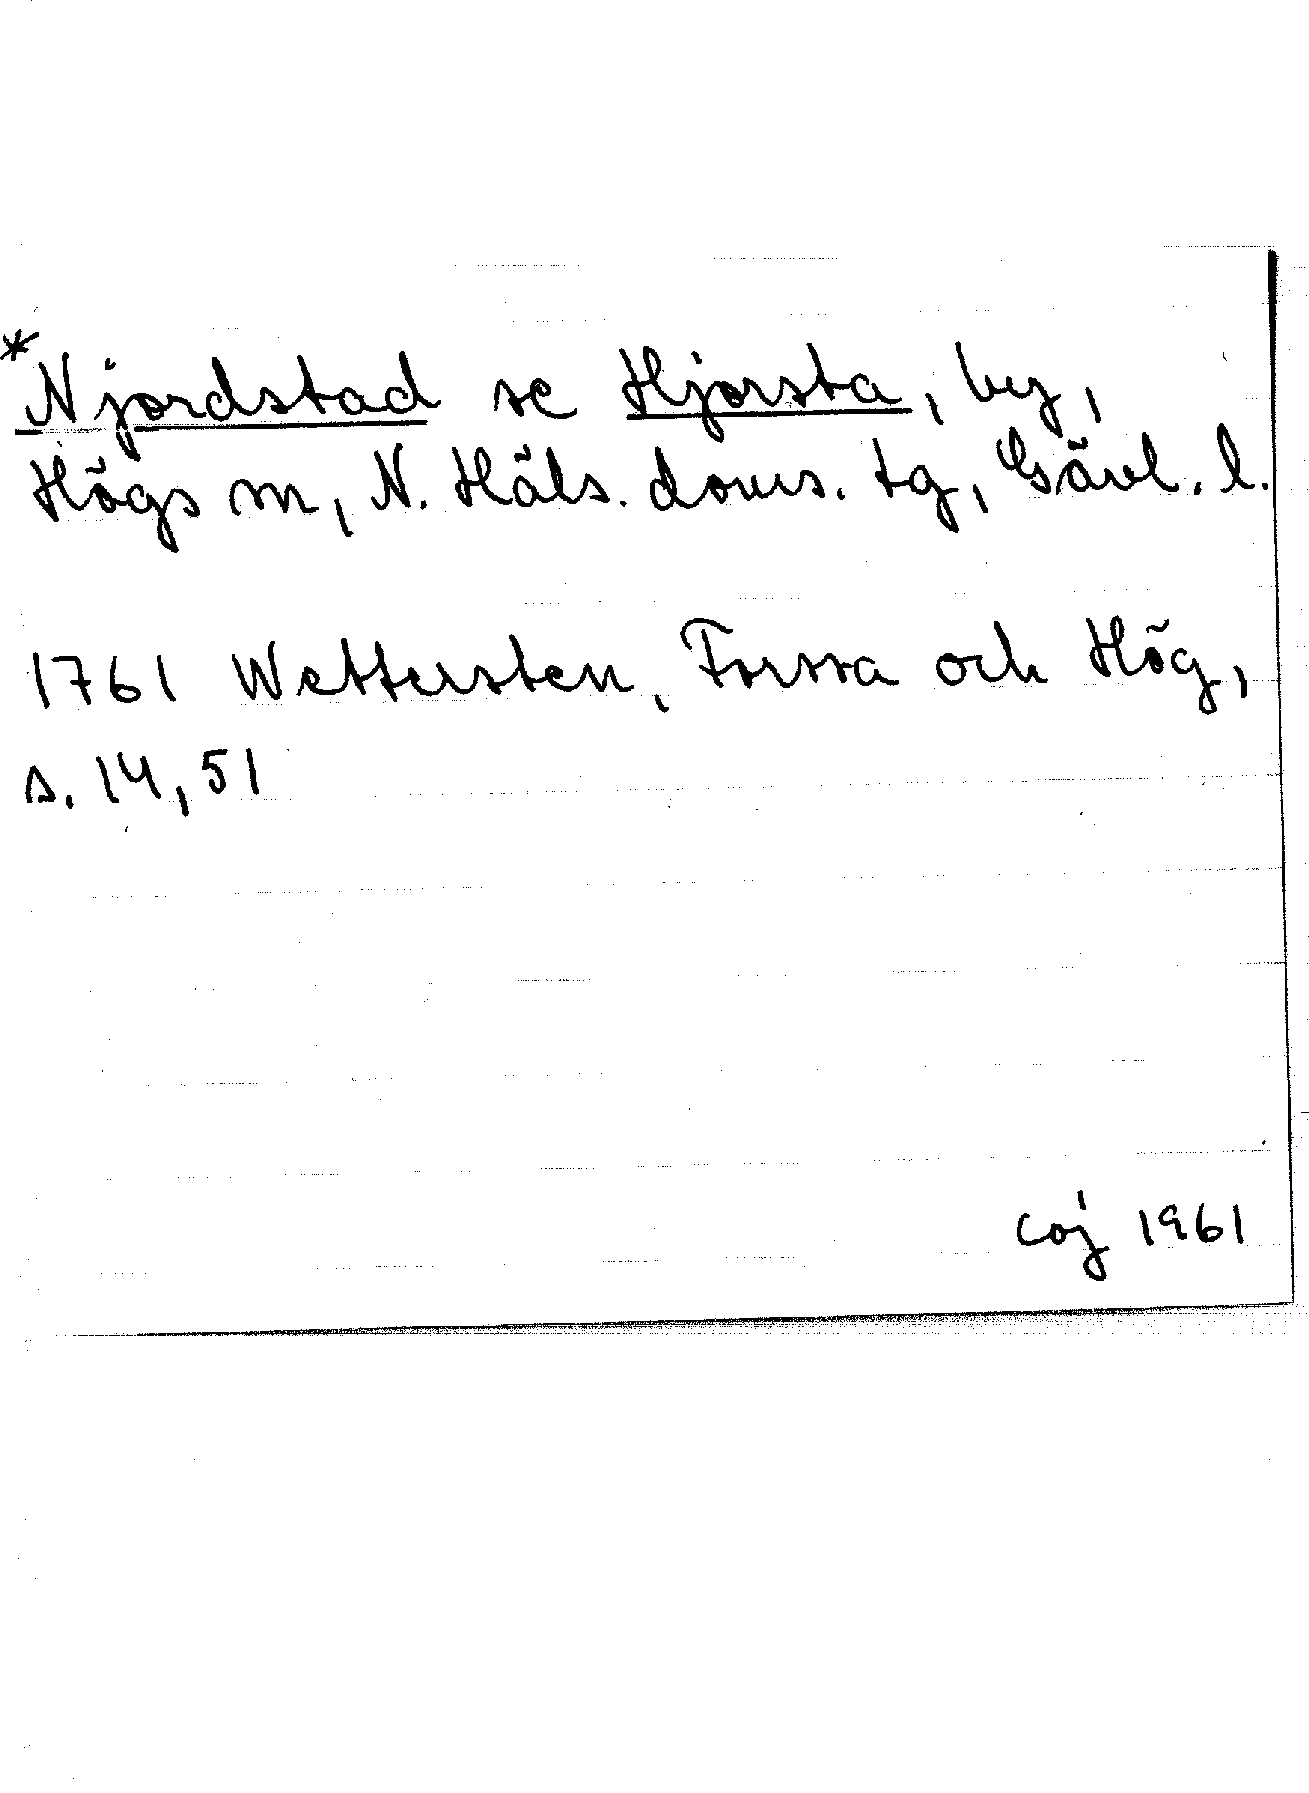 *Njordstad se Hjorsta, by,
Högs sn, N. Häls. doms. tg, Gävl. l.
1761 Wettersten, Forssa och Hög,
s. 14, 51
coj 1961